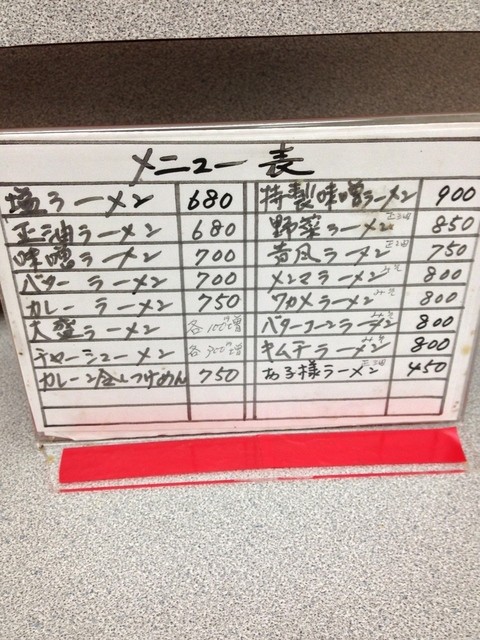 メニュー表
塩ラーメン 680
正油ラーメン 680
味噌ラーメン 700
バターラーメン 700
カレーラーメン 750
大盛ラーメン 各100円増
チャーシューメン 各300円増
カレー つけめん 750
特製味噌ラーメン 900
野菜ラーメン 850
昔風ラーメン 正油 750
メンマラーメン みそ 800
ワカメラーメン みそ 800
バターコーンラーメン みそ 800
キムチラーメン みそ 800
お子様ラーメン 正油 450